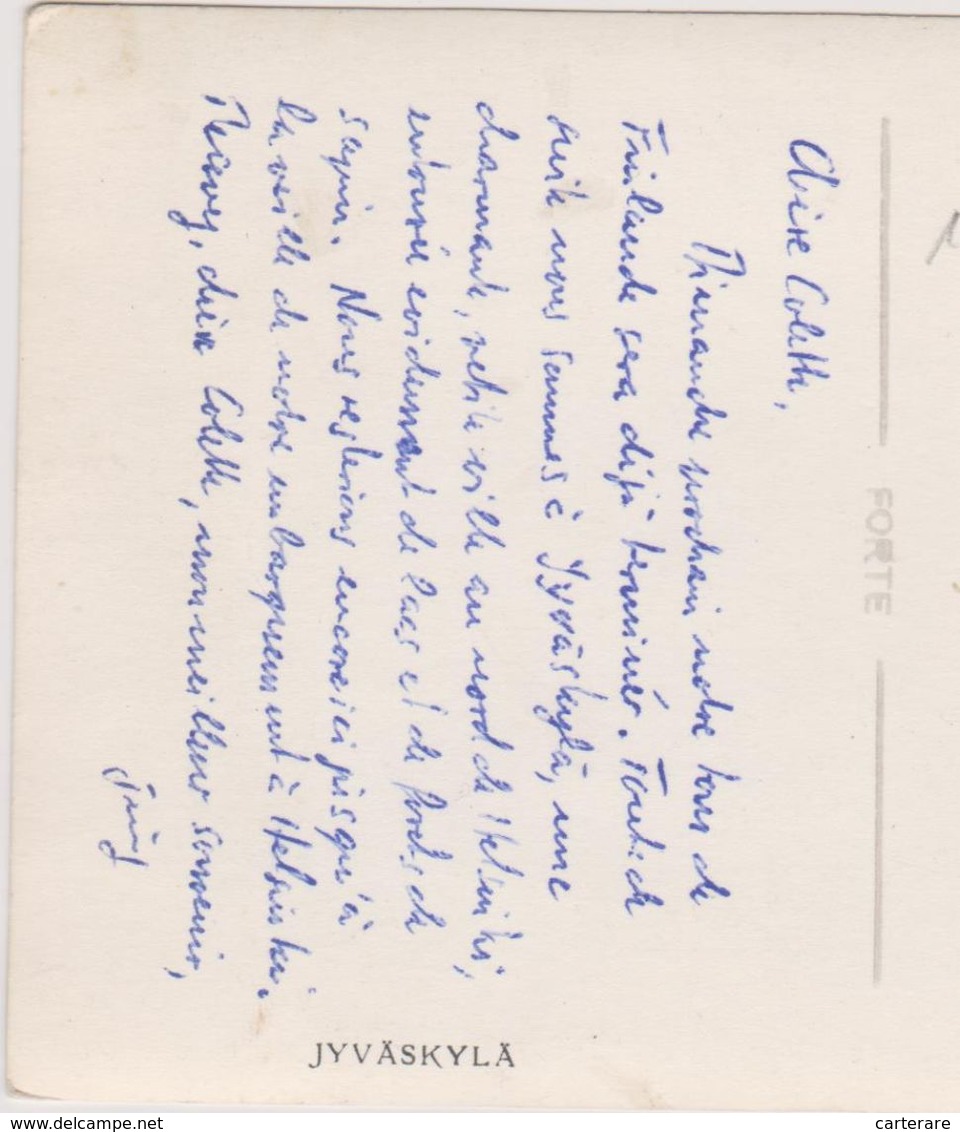 Chère Colette,
Dimanche prochain notre tour de
Finlande sera déjà terminée. Tout de
suite nous sommes à Jyväskylä, une
charmante, petite ville au nord de Helsinki,
entourée evidemment de lacs et de forêts de
sapin. Nous resterons encore ici jusqu'à
la veille de notre embarquement à Helsinki.
chère Colette, mon meilleur souvenir,
FORTE
JYVÄSKYLÄ
www.delcampe.net
carterare